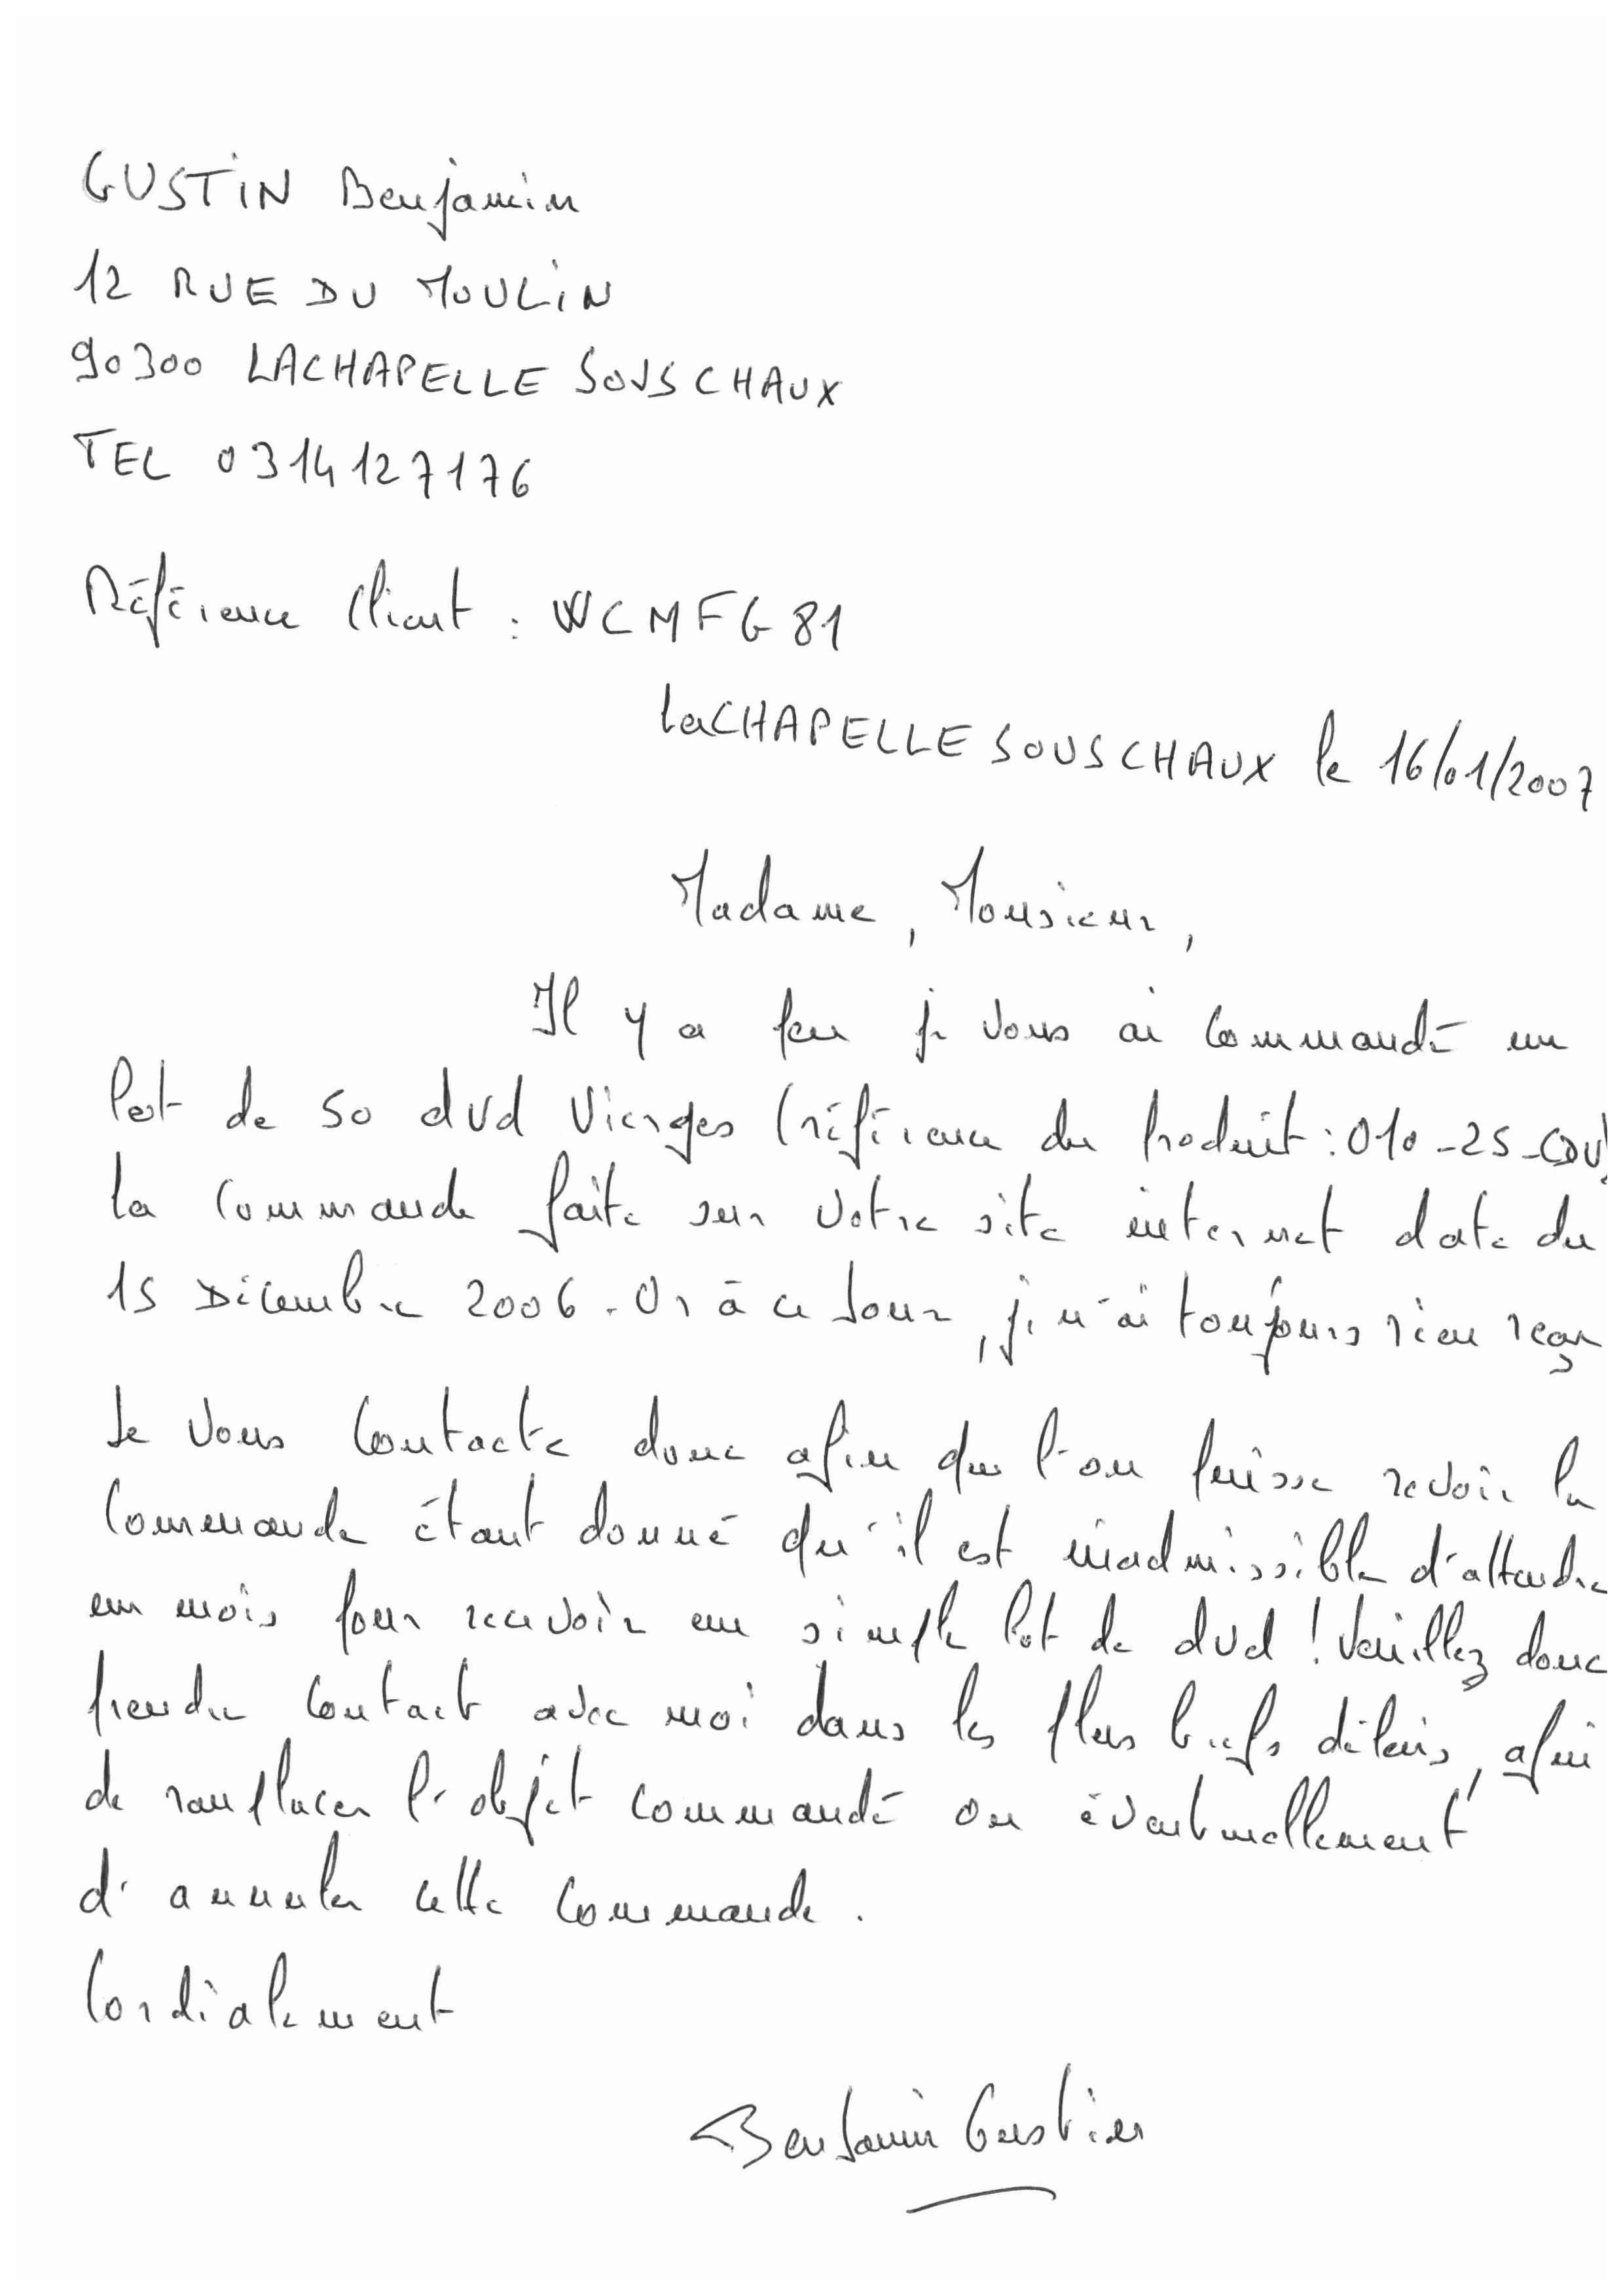 GUSTIN Benjamin
12 RUE DU MOULIN
90300 LACHAPELLE SOUS CHAUX
TEL 0314127176
Référence Client : WCMFG81
LaCHAPELLE SOUS CHAUX le 16/01/2007
Madame, Monsieur,
Il y a peu je vous ai commandé un
lot de 50 dvd vierges (référence du produit : 010-25-CDV)
la commande faite sur votre site internet date du
15 Décembre 2006. Or à ce jour, je n'ai toujours rien reçu
Je vous contacte donc afin que l'on puisse revoir la
commande étant donné qu'il est inadmissible d'attendre
un mois pour recevoir un simple lot de dvd ! Veuillez donc
prendre contact avec moi dans les plus brefs délais, afin
de remplacer l'objet commandé ou éventuellement
d'annuler cette commande.
Cordialement
Benjamin Gustin